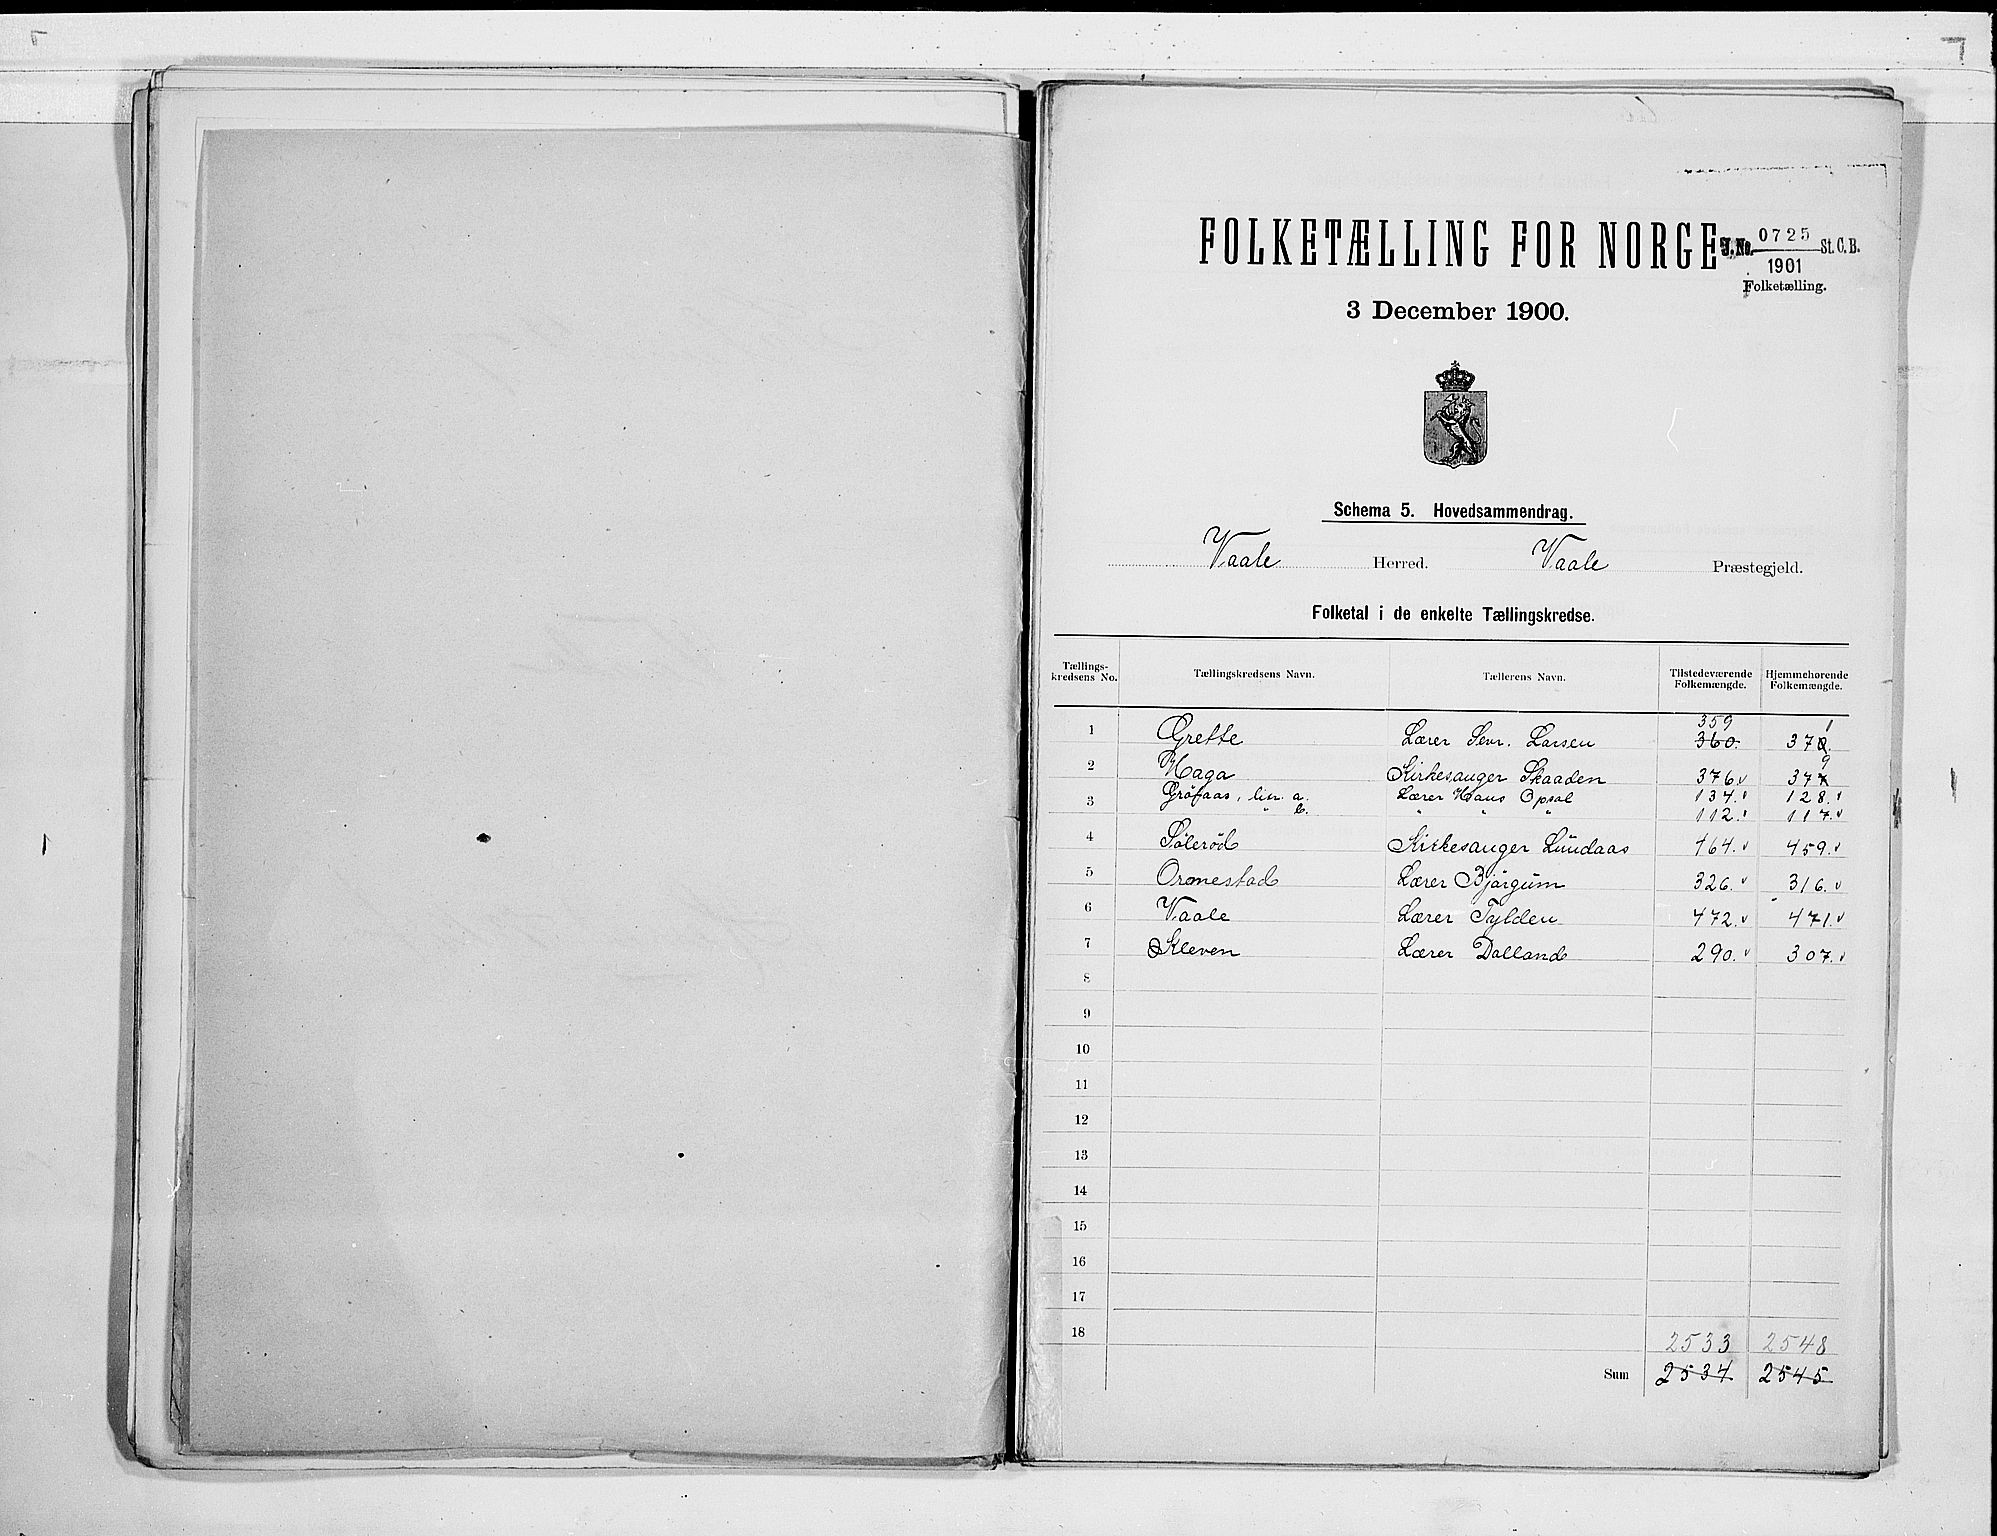 FOLKETÆLLING FOR NORGE
J. No. 0725 St. C. B.
1901
Folketælling.
3 December 1900.
Schema 5. Hovedsammendrag.
Vaale Herred. Vaale Præstegjeld.
Folketal i de enkelte Tællingskredse.
Tællings-kredsens No. Tællingskredsens Navn. Tællerens Navn. Tilstedeværende Folkemængde. Hjemmehørende Folkemængde.
359 1
1 Grette Lærer Sevr. Larsen 360. 370.
9
2 Haga Kirkesanger Skaaden 376. 377
3 Gröfaas, litr. a. Lærer Hans Opsal 134. 128.
" b. " " " 112. 117.
4 Sölerød Kirkesanger Lundaas 464. 459.
5 Ormestad Lærer Bjørgum 326. 316.
6 Vaale Lærer Tylden 472. 471.
7 Kleven Lærer Dalland 290. 307.
8
9
10
11
12
13
14
15
16
17
18
2533 2548
Sum 2534 2545